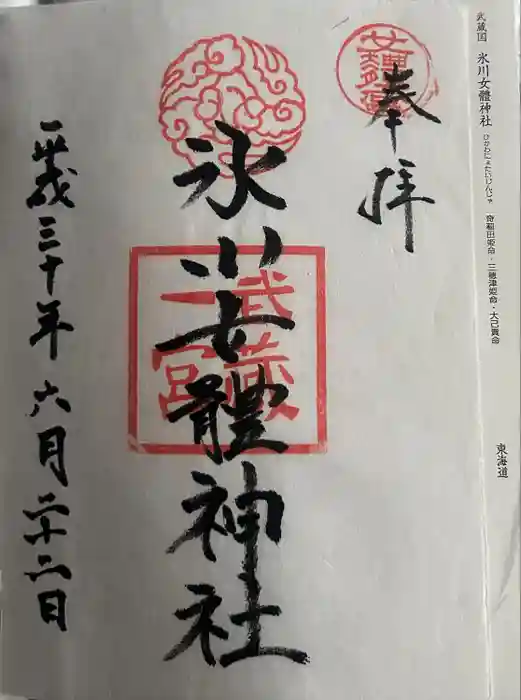 武蔵国 氷川女體神社 ひかわにょたいじんじゃ 奇稲田姫命・三穂津姫命・大己貴命
東海道
奉拝
武蔵
一宮
氷川女體神社
平成三十年六月二十二日